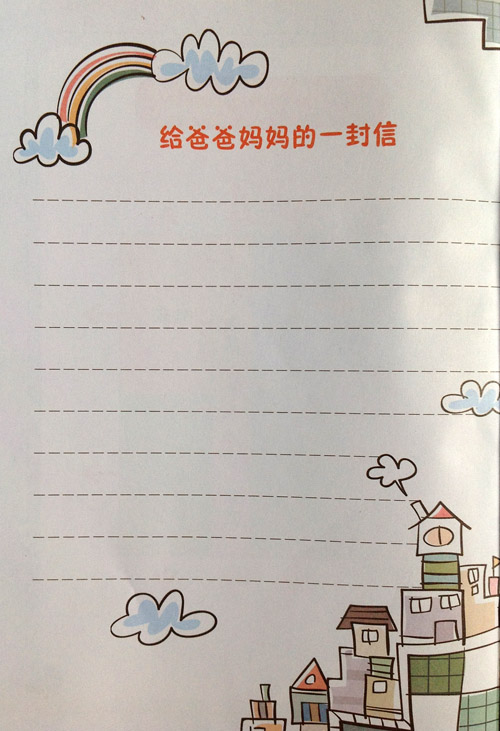 给爸爸妈妈的一封信